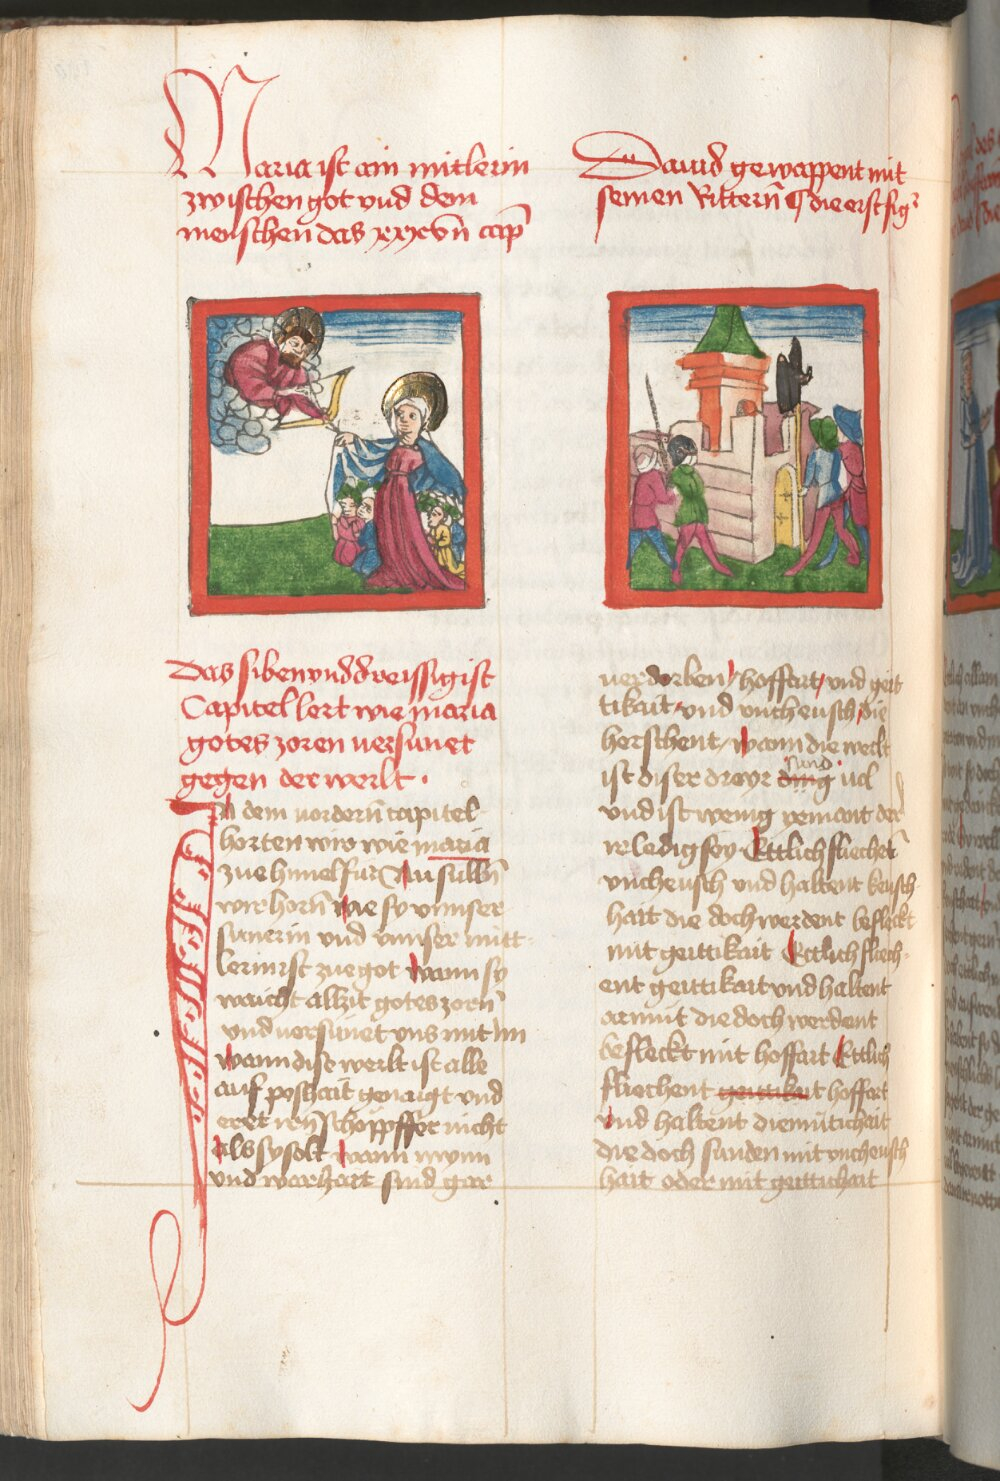 Maria ist ain mitlerin
zwischen got vnd dem
menschen das xxxvıı cap
Dauid gewappent mit
seinen Rittern die erst fig
Das siben vnd dreissigist
Capitel lert wie maria
gotes zoren versünet
gegen der werlt .
In dem vordern capitel
horten wir wie maria
zue himel fur Nu sulln
wir horn wie sy vnnser
sünerin vnd vnnser mitt
lerin ist zue got wann sy
waicht allzit gotes zorn
vnd versünet vns mit im
wann dise werlt ist alle
auf poshait genaigt vnd
eret irn schöppffer nicht
als sy solt wann mynn
vnd warhait sind gar
verdorben / hoffart / vnd geit
tikait / vnd vncheusch / die
herschent / wann die werlt
ist diser dreyr ding sund vol
vnd ist wenig yemant der
ir ledig sey Ettlich fliechent
vncheusch vnd haltent keusch
hait die doch werdent befleckt
mit geittikait Ettlich fliech
ent geittikait vnd haltent
armüt die doch werdent
befleckt mit hoffart Ettlich
fliechent geittikait hoffart
vnd haltent diemüticheit
die doch sünden mit vncheusch
hait oder mit geitticheit